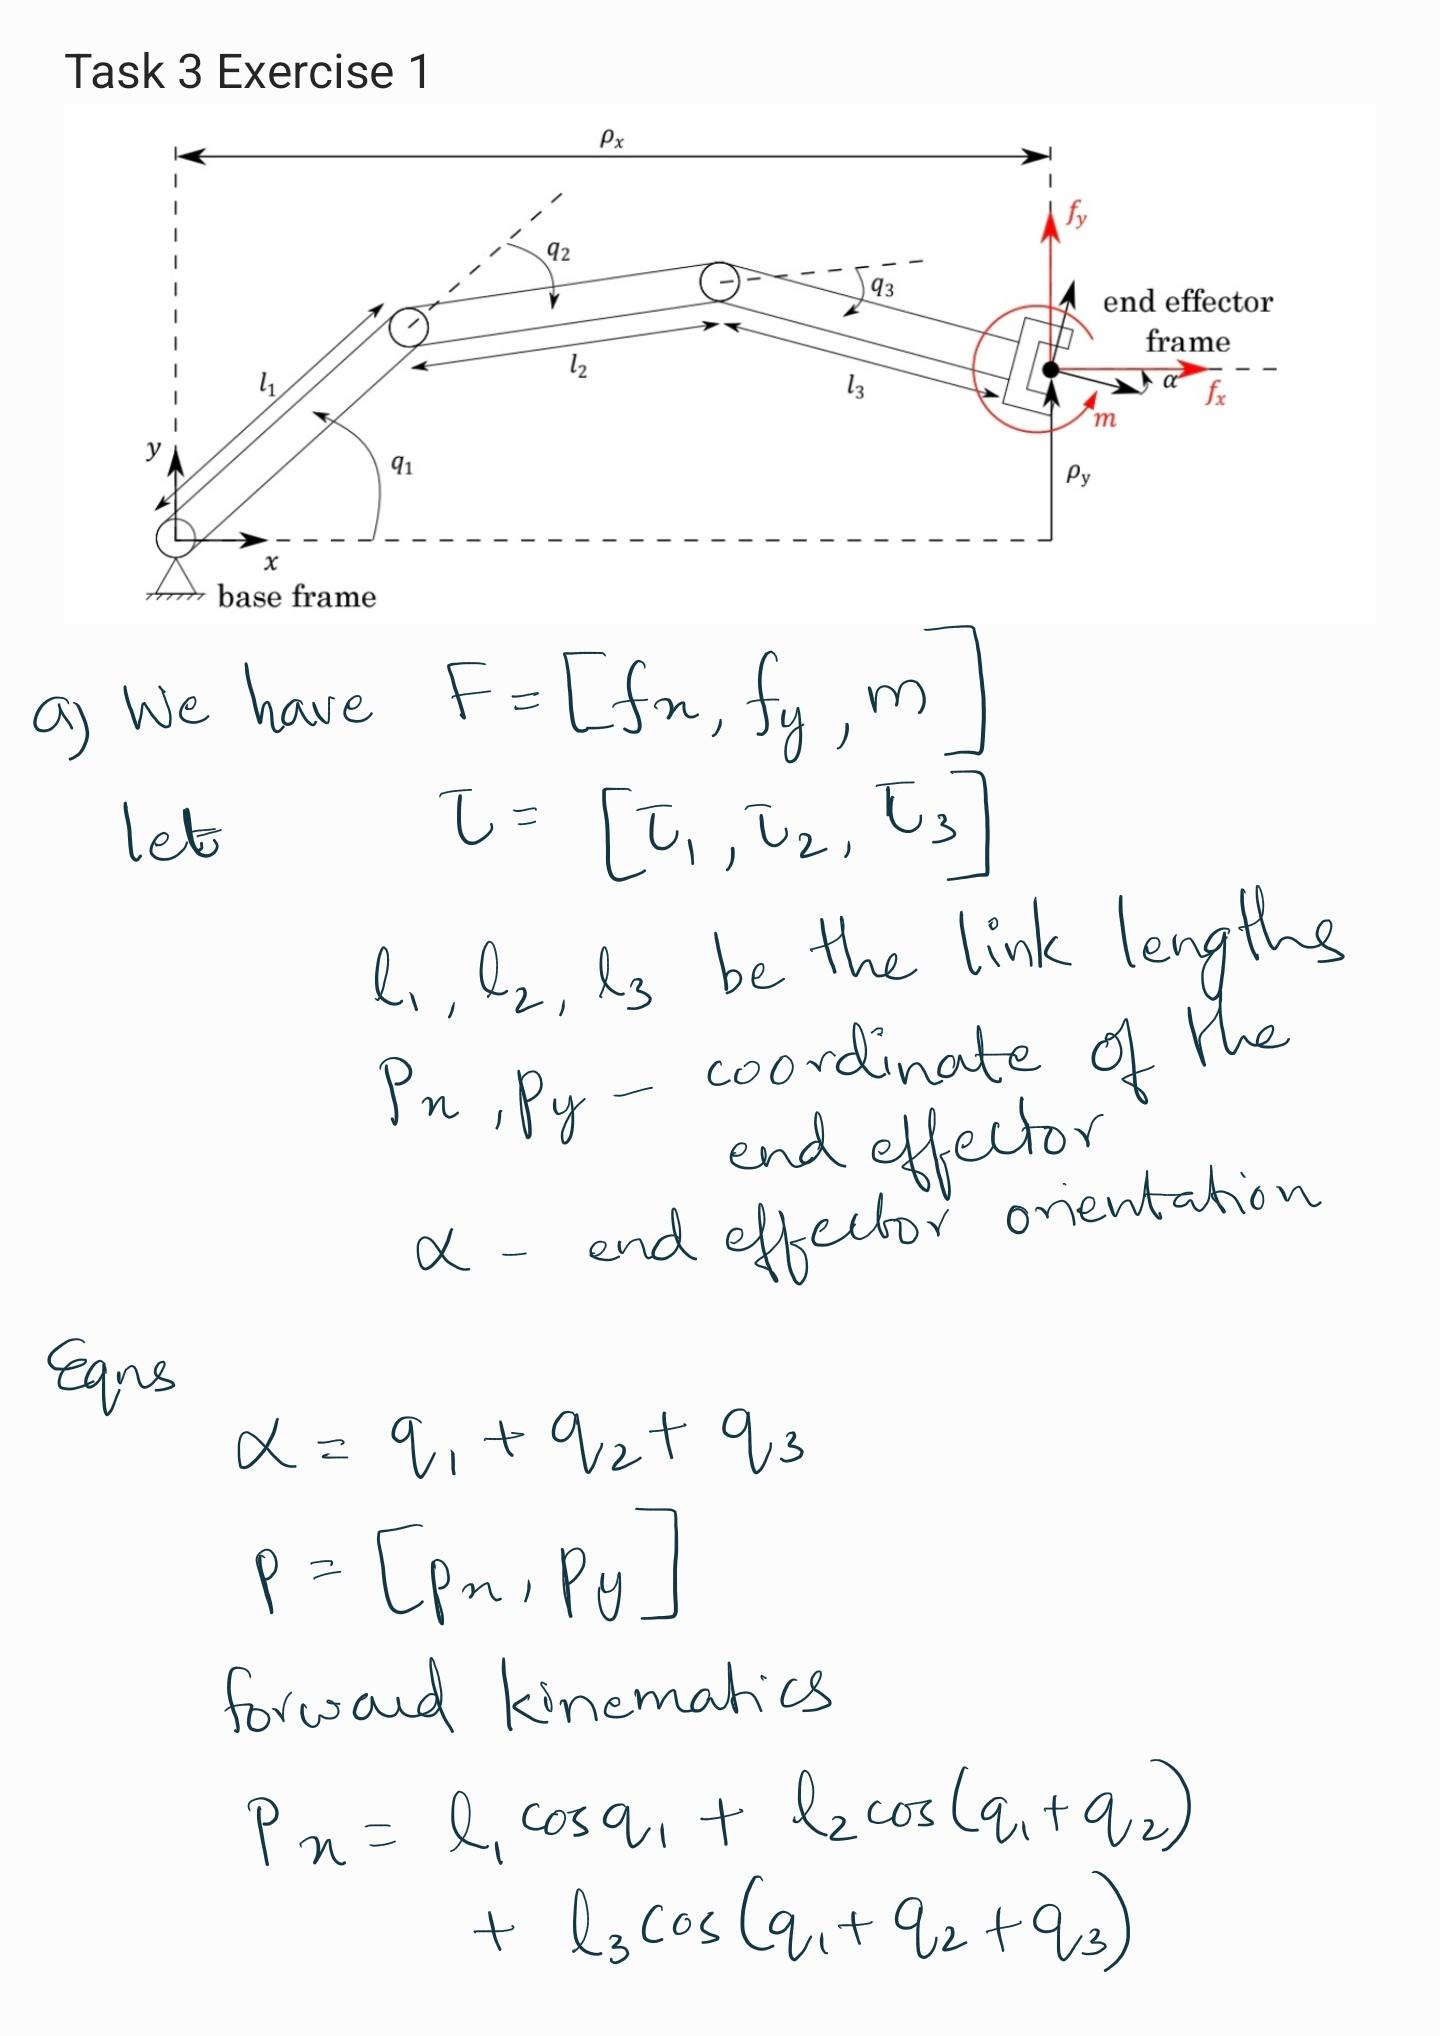 Task 3 Exercise 1
ρx
q2
fy
q3
end effector
frame
l1
l2
l3
α
fx
m
y
q1
ρy
x
base frame
a) We have F = [fx, fy, m]
let τ = [τ1, τ2, τ3]
l1, l2, l3 be the link lengths
Px, Py - coordinate of the
end effector
α - end effector orientation
Eqns
α = q1 + q2 + q3
P = [px, Py]
forward kinematics
Px = l1 cosq1 + l2 cos(q1+q2)
+ l3 cos(q1+q2+q3)